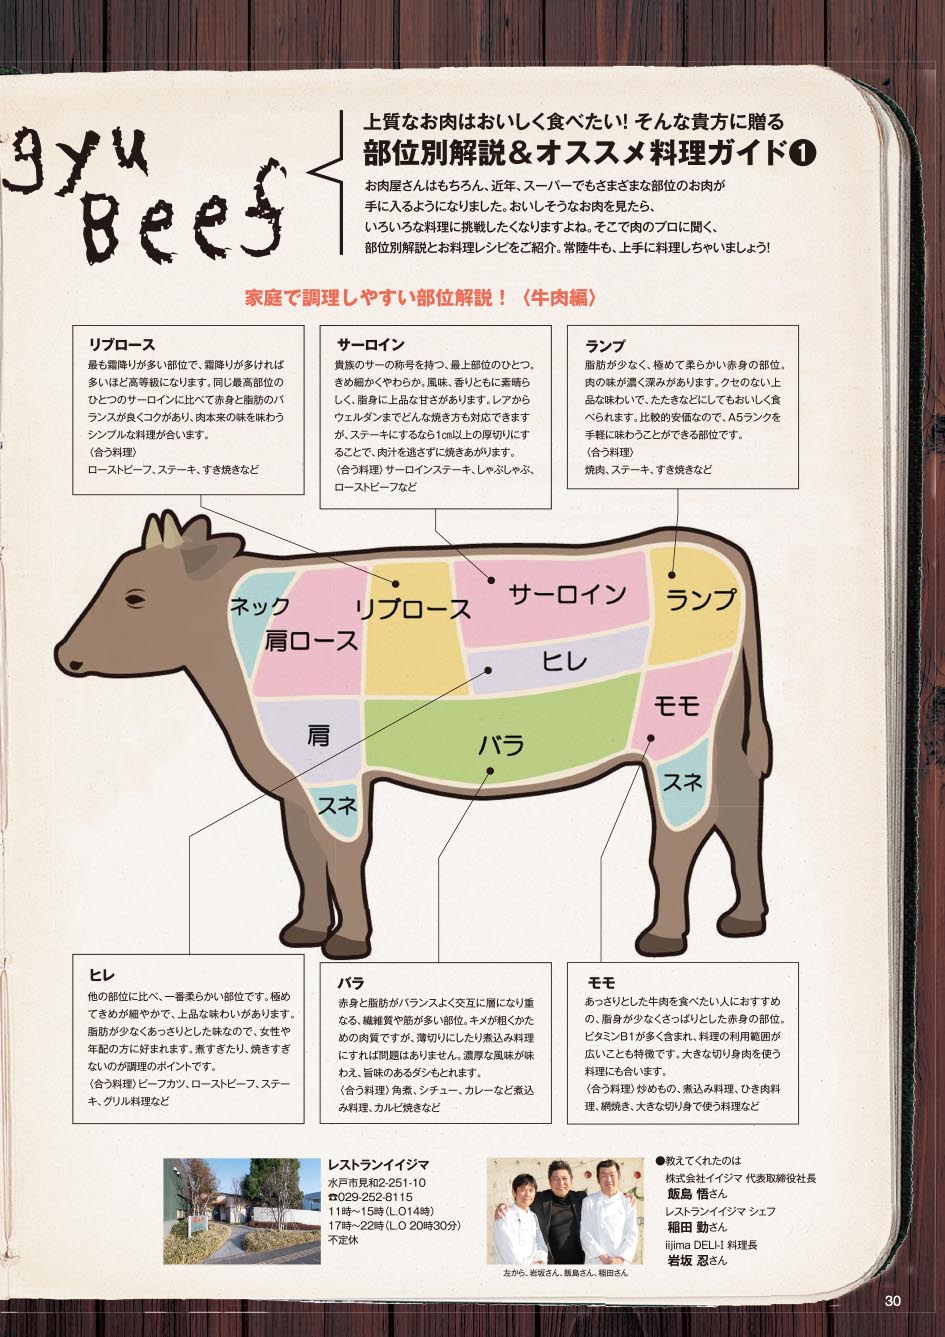 gyu
Beef
上質なお肉はおいしく食べたい! そんな貴方に贈る
部位別解説＆オススメ料理ガイド❶
お肉屋さんはもちろん、近年、スーパーでもさまざまな部位のお肉が
手に入るようになりました。おいしそうなお肉を見たら、
いろいろな料理に挑戦したくなりますよね。そこで肉のプロに聞く、
部位別解説とお料理レシピをご紹介。常陸牛も、上手に料理しちゃいましょう!
家庭で調理しやすい部位解説！〈牛肉編〉
リブロース
最も霜降りが多い部位で、霜降りが多ければ
多いほど高等級になります。同じ最高部位の
ひとつのサーロインに比べて赤身と脂肪のバ
ランスが良くコクがあり、肉本来の味を味わう
シンプルな料理が合います。
〈合う料理〉
ローストビーフ、ステーキ、すき焼きなど
サーロイン
貴族のサーの称号を持つ、最上部位のひとつ。
きめ細かくやわらか。風味、香りともに素晴ら
しく、脂身に上品な甘さがあります。レアから
ウェルダンまでどんな焼き方も対応できます
が、ステーキにするなら1㎝以上の厚切りにす
ることで、肉汁を逃さずに焼きあがります。
〈合う料理〉サーロインステーキ、しゃぶしゃぶ、
ローストビーフなど
ランプ
脂肪が少なく、極めて柔らかい赤身の部位。
肉の味が濃く深みがあります。クセのない上
品な味わいで、たたきなどにしてもおいしく食
べられます。比較的安価なので、A5ランクを
手軽に味わうことができる部位です。
〈合う料理〉
焼肉、ステーキ、すき焼きなど
ネック
肩ロース
リブロース
サーロイン
ランプ
ヒレ
肩
バラ
モモ
スネ
スネ
ヒレ
他の部位に比べ、一番柔らかい部位です。極め
てきめが細やかで、上品な味わいがあります。
脂肪が少なくあっさりとした味なので、女性や
年配の方に好まれます。煮すぎたり、焼きすぎ
ないのが調理のポイントです。
〈合う料理〉ビーフカツ、ローストビーフ、ステー
キ、グリル料理など
バラ
赤身と脂肪がバランスよく交互に層になり重
なる、繊維質や筋が多い部位。キメが粗くかた
めの肉質ですが、薄切りにしたり煮込み料理
にすれば問題はありません。濃厚な風味が味
わえ、旨味のあるダシもとれます。
〈合う料理〉角煮、シチュー、カレーなど煮込
み料理、カルビ焼きなど
モモ
あっさりとした牛肉を食べたい人におすすめ
の、脂身が少なくさっぱりとした赤身の部位。
ビタミンB1が多く含まれ、料理の利用範囲が
広いことも特徴です。大きな切り身肉を使う
料理にも合います。
〈合う料理〉炒めもの、煮込み料理、ひき肉料
理、網焼き、大きな切り身で使う料理など
レストランイイジマ
水戸市見和2-251-10
☎029-252-8115
11時～15時（L.O14時）
17時～22時（L.O 20時30分）
不定休
左から、岩坂さん、飯島さん、稲田さん
●教えてくれたのは
株式会社イイジマ 代表取締役社長
飯島 悟さん
レストランイイジマ シェフ
稲田 勤さん
iijima DELI-I 料理長
岩坂 忍さん
30